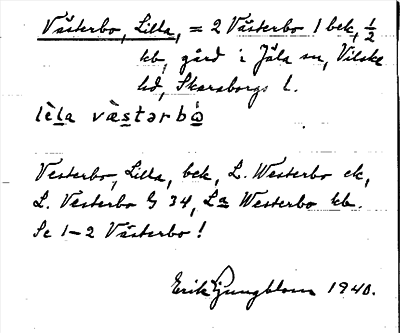 Västerbo, Lilla, = 2 Västerbo 1 bek, 1/2
kb, gård i Jäla sn, Vilske
hd, Skaraborgs l.
lèla västərbó
Vesterbo, Lilla, bek, L. Westerbo ek,
L. Vesterbo G 34, La Westerbo kb.
Se 1-2 Västerbo!
Erik Ljungblom 1940.